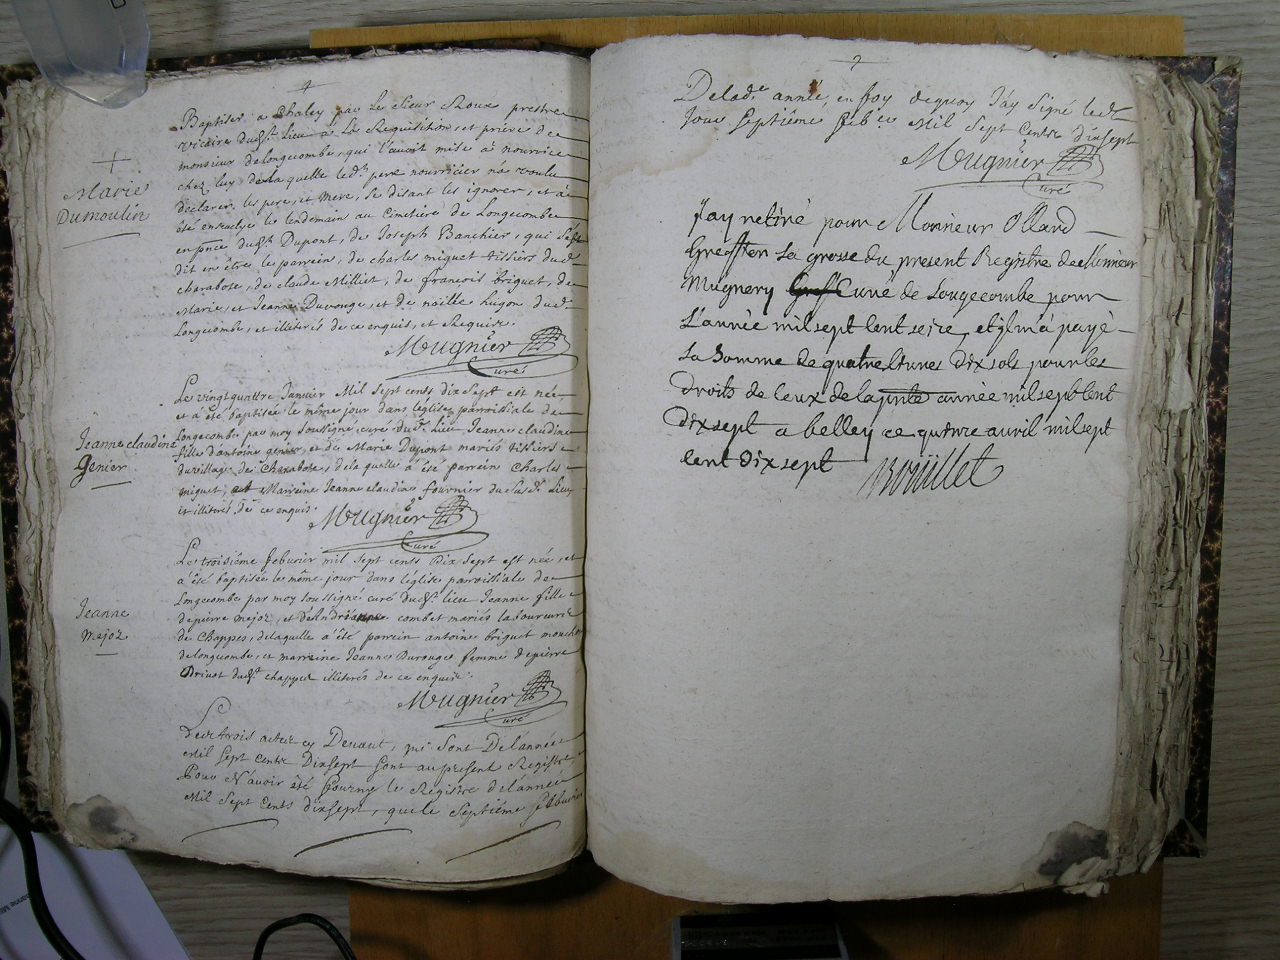 Baptisée a Chaley par le Sieur Roux prestre
vicaire dudt lieu a la Requisition, et prière de
monsieur de longecombe, qui l'avoit mise a nourrice
chez luy de laquelle ledt pere nourricier n'a voulu
declarer les pere, et mere, se disant les ignorer, et a
été ensevelye le lendemain au Cimetière de Longecombe
en pnce dudt Dupont, de Joseph Banchier, qui s'est
dit en être le parrein, de charles miguet tissiers dud.
charabote, de claude Milliet, de françois briguet, de
Marie, et Jeanne Durouge, et de noille hugon dud.
Longecombe, et illiterés de ce enquis, et Requis.
Mugnier
Curé
Marie
Dumoulin
Le vingt quattre Janvier Mil Sept cents dix Sept est née
et a été baptisée le même jour dans l'église parroissiale de
Longecombe par moy soussigné curé dudt lieu Jeanne claudine
fille d'antoine genier, et de Marie Dupont mariés tissiers
du village de Charabote, de laquelle a été parrein Charles
miguet, et Marreine Jeanne claudine fournier du susdt lieu
et illiterés de ce enquis.
Mugnier
Curé
Jeanne claudine
Genier
Le troisième febvrier mil sept cents Dix Sept est née, et
a été baptisée le même jour dans l'église parroissiale de
Longecombe par moy soussigné curé dudt lieu Jeanne fille
de pierre mejoz, et de Andrianne combet mariés laboureurs
de Chappes, de laquelle a été parrein antoine briguet
de longecombe, et marreine Jeanne Durouge femme de pierre
Drivet dudt chappes illiterés de ce enquis.
Mugnier
Curé
Jeanne
Mejoz
Les trois actes cy Devant, qui sont De l'année
Mil Sept Cents Dixsept sont au present Registre
Pour N'avoir été fourny le Registre de l'année
Mil Sept Cents dixsept, que le Septième febvrier
De lade année, en foy de quoy J'ay Signé ledt
Jour Septième feber Mil Sept Cents dixsept
Mugnier
Curé
J'ay retiré pour Monsieur Olland
Greffier la grosse du present Registre de Monsieur
Mugnery Curé de Longecombe pour
L'année mil sept cent seize, et il m'a payé
la Somme de quatre livres dix sols pour les
Droits de ceux de la année mil sept cent
Dixsept a belley ce quinze avril mil sept
cent dixsept Boüillet